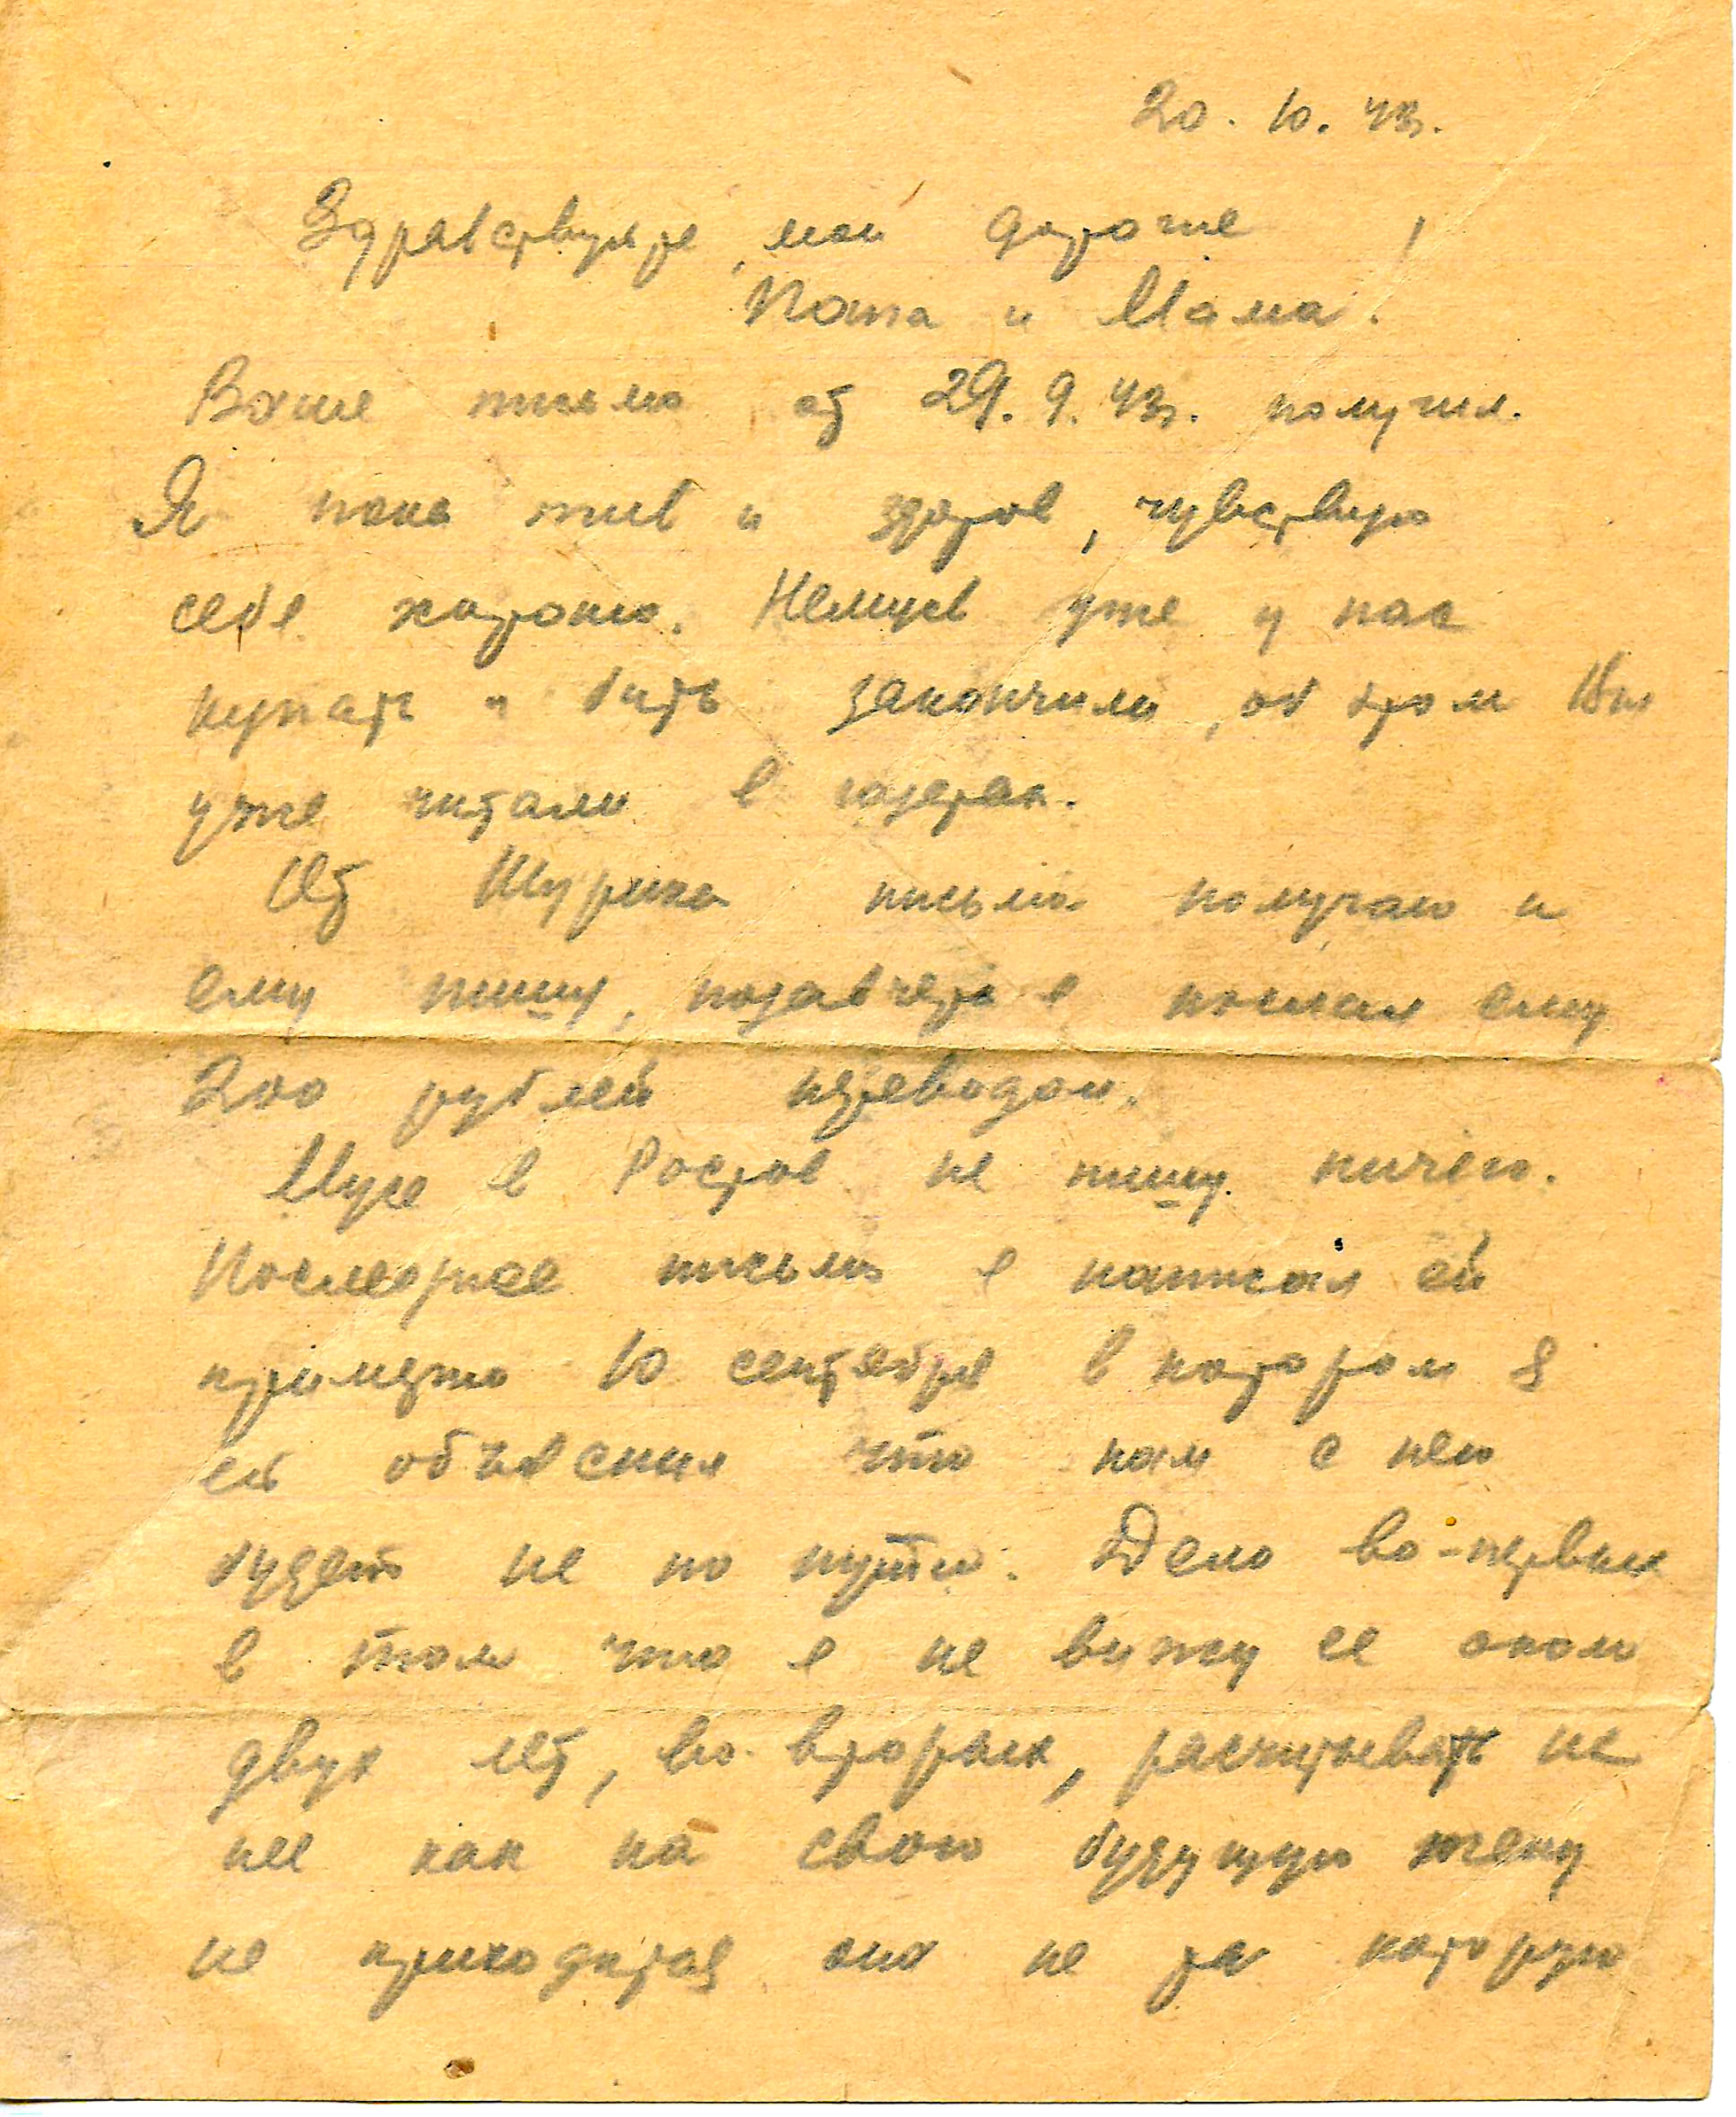 20. 10. 43г.
Здравствуйте, мои дорогие !
Папа и Мама.
Ваше письмо от 29. 9. 43г. получил.
Я пока жив и здоров, чувствую
себя хорошо. Немцев уже у нас
купать и бить закончили, об этом Вы
уже читали в газетах.
От Шурика письма получаю и
ему пишу, позавчера я послал ему
200 рублей переводом.
Мусе в Ростов не пишу ничего.
Последнее письмо я написал ей
примерно 10 сентября в котором я
ей объяснил что нам с ней
будет не по пути. Дело во-первых
в том что я не вижу ее около
двух лет, во-вторых, расчитывать на
нее как на свою будущую жену
не приходится она не та которую